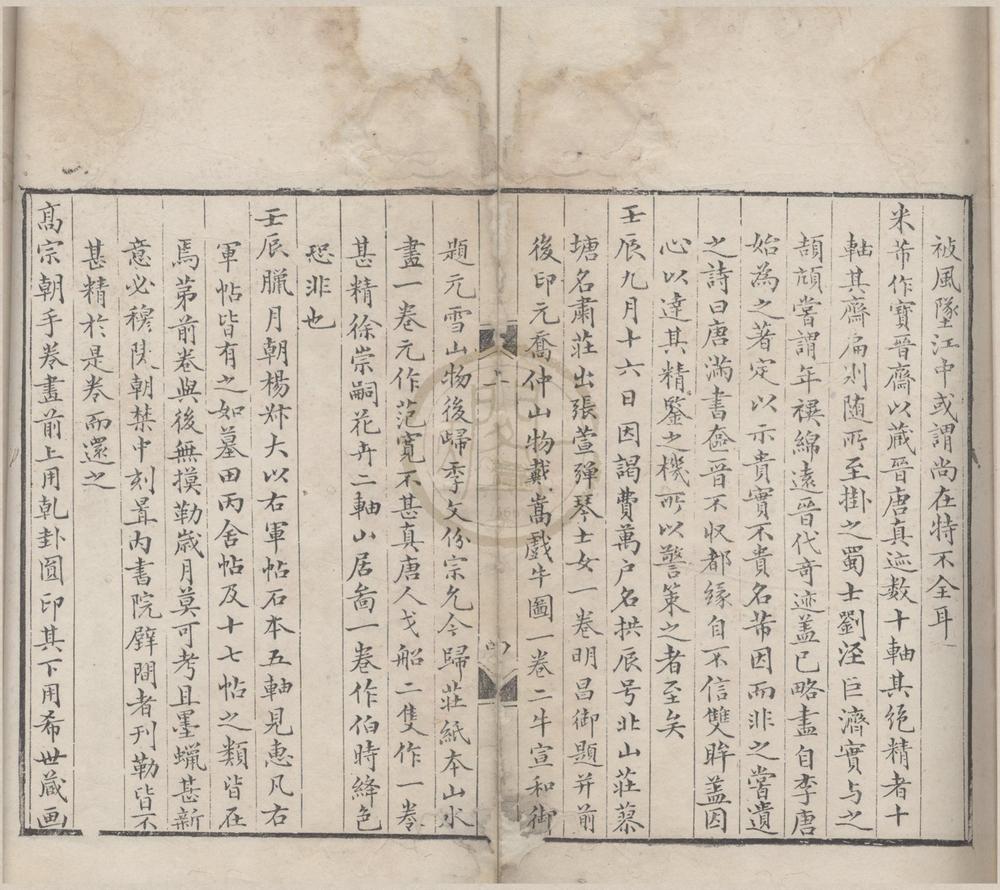 被風墜江中或謂尚在特不全耳
米芾作寶晉齋以蔵晉唐真迹数十軸其绝精者十
軸其齋扁则随所至掛之蜀士劉涇巨濟實与之
頡頏嘗謂年禩綿遠晉代奇迹盖已略盡自李唐
始為之著定以示貴實不貴名芾因而非之嘗遺
之詩曰唐滿書奩晉不収都緣自不信雙眸盖因
心以達其精鑒之機所以警策之者至矣
壬辰九月十六日因謁費萬户名拱辰号北山莊蓼
塘名肅莊出張萱彈琴士女一卷明昌御題并前
後印元喬仲山物戴嵩戲牛圖一卷二牛宣和御
題元雪山物後歸季文份宗允今歸莊紙本山水
畫一卷元作范寛不甚真唐人戈船二雙作一卷
甚精徐崇嗣花卉二軸山居啚一卷作伯時絳色
恐非也
壬辰臘月朝楊㚘大以右軍帖石本五軸見惠凡右
軍帖皆有之如墓田丙舍帖及十七帖之類皆在
焉苐前卷與後無摸勒歳月莫可考且墨蠟甚新
意必穆陵朝禁中刻置内書院壁間者刊勒皆不
甚精於是卷而還之
髙宗朝手卷畫前上用乹卦圓印其下用希世蔵画